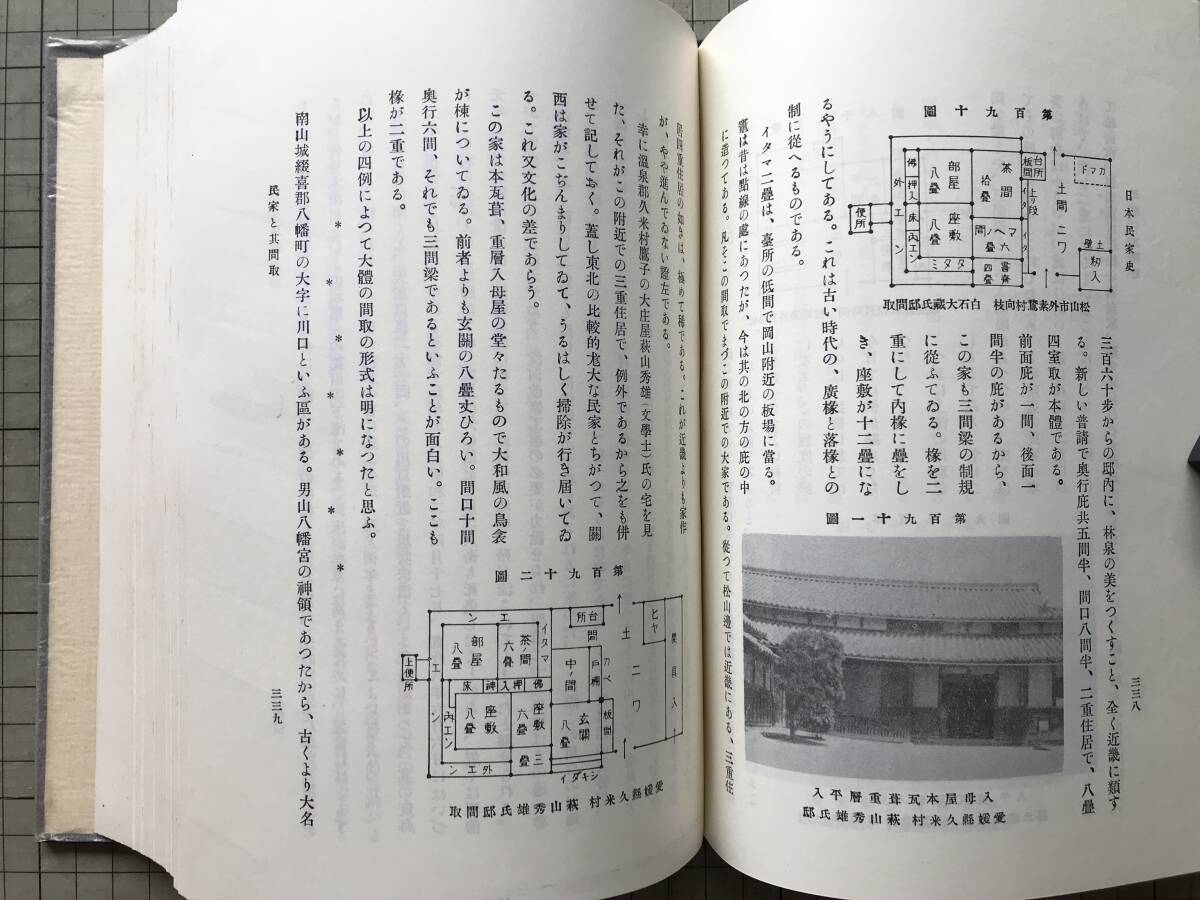 日本民家史
三三八
第百九十圖
便所
外エン
佛
押入
床
內エン
部屋
八疊
座敷
八疊
茶ノ間
拾疊
マヘノ間
六疊
書齋
四疊
タタミ
イタ
イタ
台所
板間
上リ段
カマド
土間ニワ
土壁
籾入
松山市外素鵞村向枝 白石大藏氏邸間取
三百六十步からの邸內に、林泉の美をつくすこと、全く近畿に類す
る。新しい普請で奥行庇共五間半、間口八間半、二重住居で、八疊
四室取が本體である。
前面庇が一間、後面一
間半の庇があるから、
この家も三間梁の制規
に從ふてゐる。椽を二
重にして內椽に疊をし
き、座敷が十二疊にな
第百九十一圖
入母屋本瓦葺重層平入
愛媛縣久米村 萩山秀雄氏邸
るやうにしてある。これは古い時代の、廣椽と落椽との
制に從へるものである。
イタマ二疊は、臺所の低間で岡山附近の板場に當る。
竈は昔は點線の處にあつたが、今は其の北の方の庇の中
に造つてある。凡そこの間取でまづこの附近での大家である。從つて松山邊では近畿にある、三重住
居四重住居の如きは、極めて稀である。これが近畿よりも家作
が、やや進んでゐない證左である。
幸に溫泉郡久米村鷹子の大庄屋萩山秀雄(文學士)氏の宅を見
た、それがこの附近での三重住居で、例外であるから之をも併
せて記しておく。蓋し東北の比較的尨大な民家とちがつて、關
西は家がこぢんまりしてゐて、うるはしく掃除が行き屆いてゐ
る。これ又文化の差であらう。
この家は本瓦葺、重層入母屋の堂々たるもので大和風の鳥衾
が棟についてゐる。前者よりも玄關の八疊丈ひろい。間口十間
奥行六間、それでも三間梁であるといふことが面白い。ここも
椽が二重である。
第百九十二圖
上便所
エン
エン
內エン
外エン
部屋
八疊
茶ノ間
六疊
イタマ
床
神
押入
佛
座敷
八疊
座敷
六疊
三疊
中ノ間
玄關
八疊
戶棚
カベ
板間
シキダイ
台所
間
土
ニワ
ヒヤ
農具入
愛媛縣久米村 萩山秀雄氏邸間取
以上の四例によつて大體の間取の形式は明になつたと思ふ。
* * * * * *
南山城綴喜郡八幡町の大字に川口といふ區がある。男山八幡宮の神領であつたから、古くより大名
民家と其間取
三三九